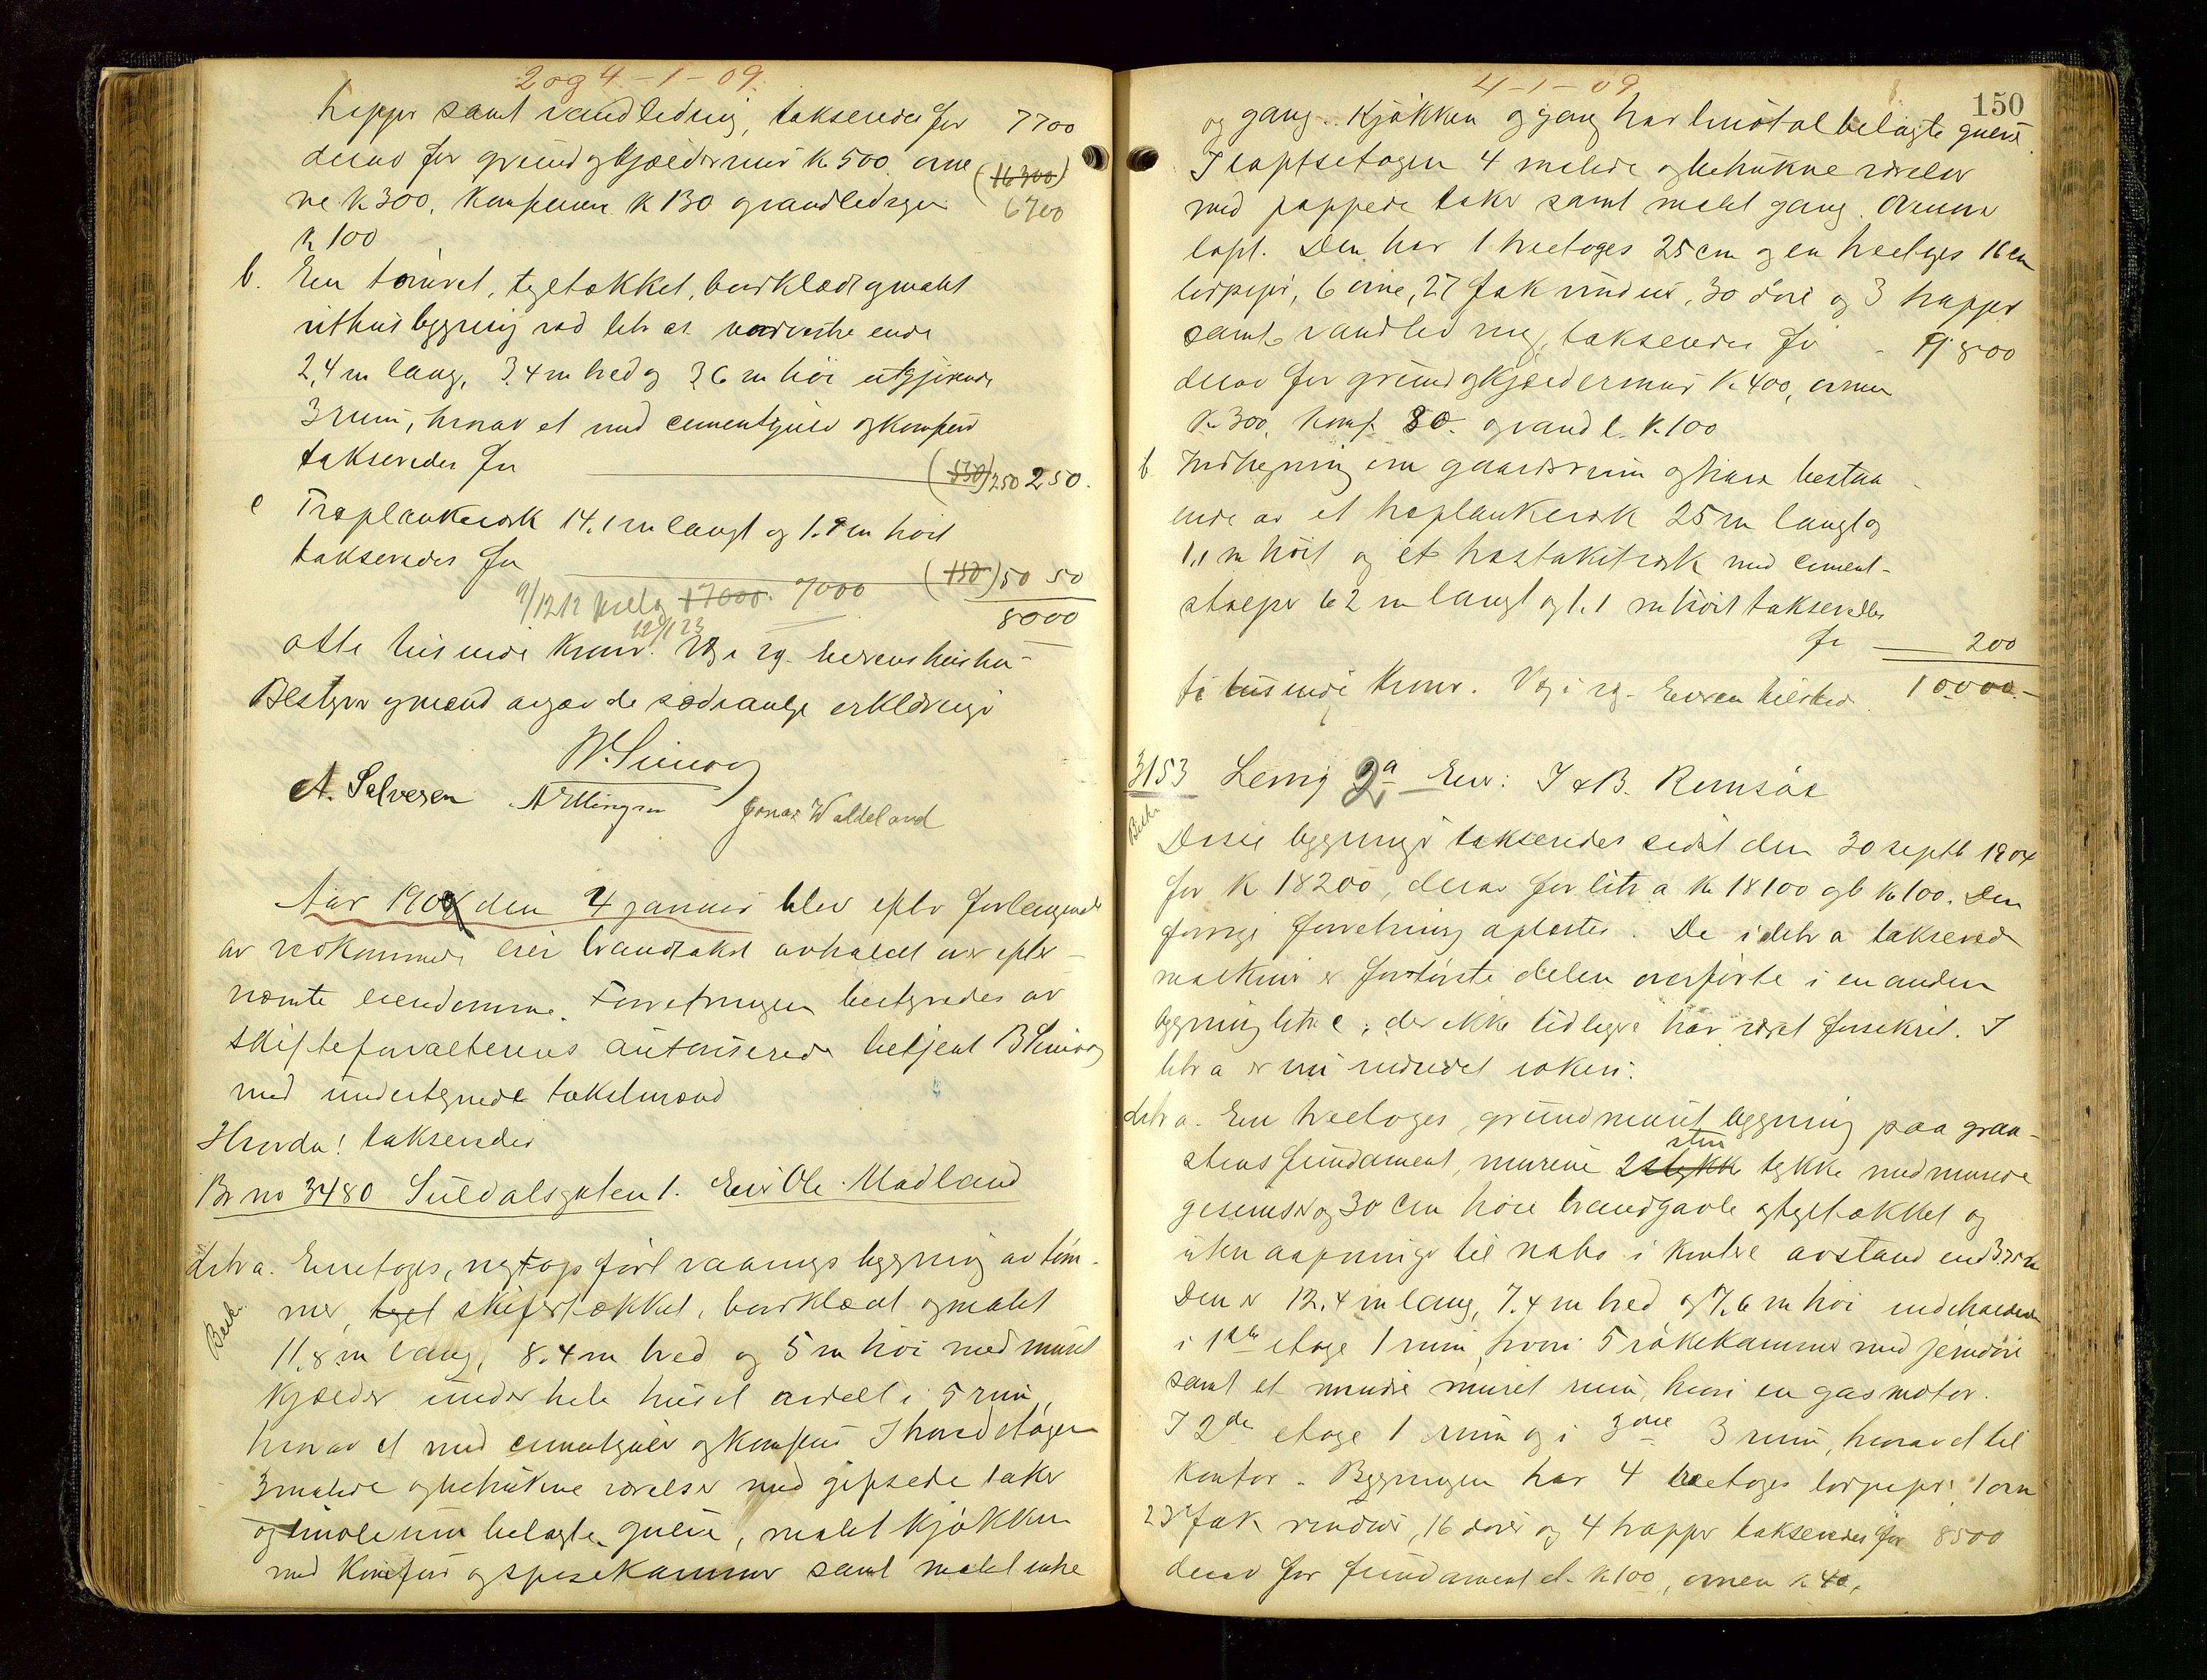 2 og 4-1-09.
trapper samt vandledning, takseredes for 7700
derav for grund og kjældermur k 500. ovne (16300)
ne k 300, komfuren k 130 og vandledngen 6700
k 100
b. En tømret, tegltækket, bordklædt og malt
uthusbygning ved litr a's nordvestre ende
2,4 m lang, 3,4 m bred og 3,6 m høi utgjørende
3 rum, hvorav et med cementgulv og komfur
takseredes for (550) 250 250.
c Træplankeværk 14.1 m langt og 1.9 m høit
takseredes for (150) 50 50
9/12 12 17000. 7000 8000
22/1 23
otte tusinde kroner. Vg. i rg. eierens hustru
Bestyrer og mænd avgav de sædvanlige erklæringer
A. Salvesen A Ellingsen Jonas Waldeland
Aar 1909 den 4 januar blev efter forlangende
av vedkommende eier brandtakst avholdt over efter-
nævnte eiendomme. Forretningen bestyredes av
skifteforvalterens autoriserede betjent
med undertegnede takstmænd
Hvorda! takseredes
Br no 3480 Suldalsgaten 1. Eier Ole Madland
Litr a. Enetages, nyopført vaanings bygning av tøm-
Besk.
mer, tegl skifertækket, bordklædt og malt
11.8 m lang, 8.4 m bred og 5 m høi med muret
kjælder under hele huset avdelt i 5 rum,
hvorav et med cementgulv og komfur I hovedetagen
3 malede og betrukne værelser med gipsede taker
og linoleum belagte gulve, malet kjøkken
med komfur og spisekammer samt malet entre
4-1-09
150
og gang. Kjøkken og gang har linotol belagte gulve.
I loftsetagen 4 malede og betrukne værelser
med pappede taker samt malet gang. Ovenover
loft. Den har 1 treetages 25 cm og en treetages 16 cm
lørpipe, 6 ovne, 27 fak vinduer, 30 døre og 3 trapper
samt vandledning, takseredes for - 9800
derav for grund og kjældermur k. 400, ovnene
k 300, komf. 80. og vandl. k. 100
b. Indhegning om gaardsrum og have bestaa-
ende av et træplankeværk 25 m langt og
1,1 m høit og et træstakitværk med cement-
stolper 62 m langt og 1.1 m høit takseredes
for 200
ti tusinde kroner. Vg. i rg. Eieren tilsted. 10000.-
3153 Lervig 2a Eier: I & B. Remsøe
Besk.
Disse bygninger takseredes sidst den 30 septb 1904
for k 18200, derav for litr a k 18100 og b k 100. Den
forrige forretning oplæstes. De i litr a takserede
maskiner er for største delen overførte i en anden
bygning litr c, der ikke tidligere har været forsikret. I
litr a er nu indredet røkeri.
Litr a. En treetages, grundmuret bygning paa graa-
stens fundament, murene 2 stykk sten tykke med murede
gesimser og 30 cm høie brandgavle og tegltækket og
uten aapninger til nabo i kortere avstand end 3.75 m
Den er 12.4 m lang, 7.4 m bred og 7.6 m høi indeholdende
i 1ste etage 1 rum, hvori 5 røkekammer med jerndøre
samt et mindre muret rum, hvori en gasmotor.
I 2den etage 1 rum og i 3die 3 rum, hvorav et til
kontor. Bygningen har 4 treetages lørpiper, 1 ovn
23 fak vinduer, 16 døre og 4 trapper takseredes for 8500
derav for fundament et k 100, ovnen k 40,